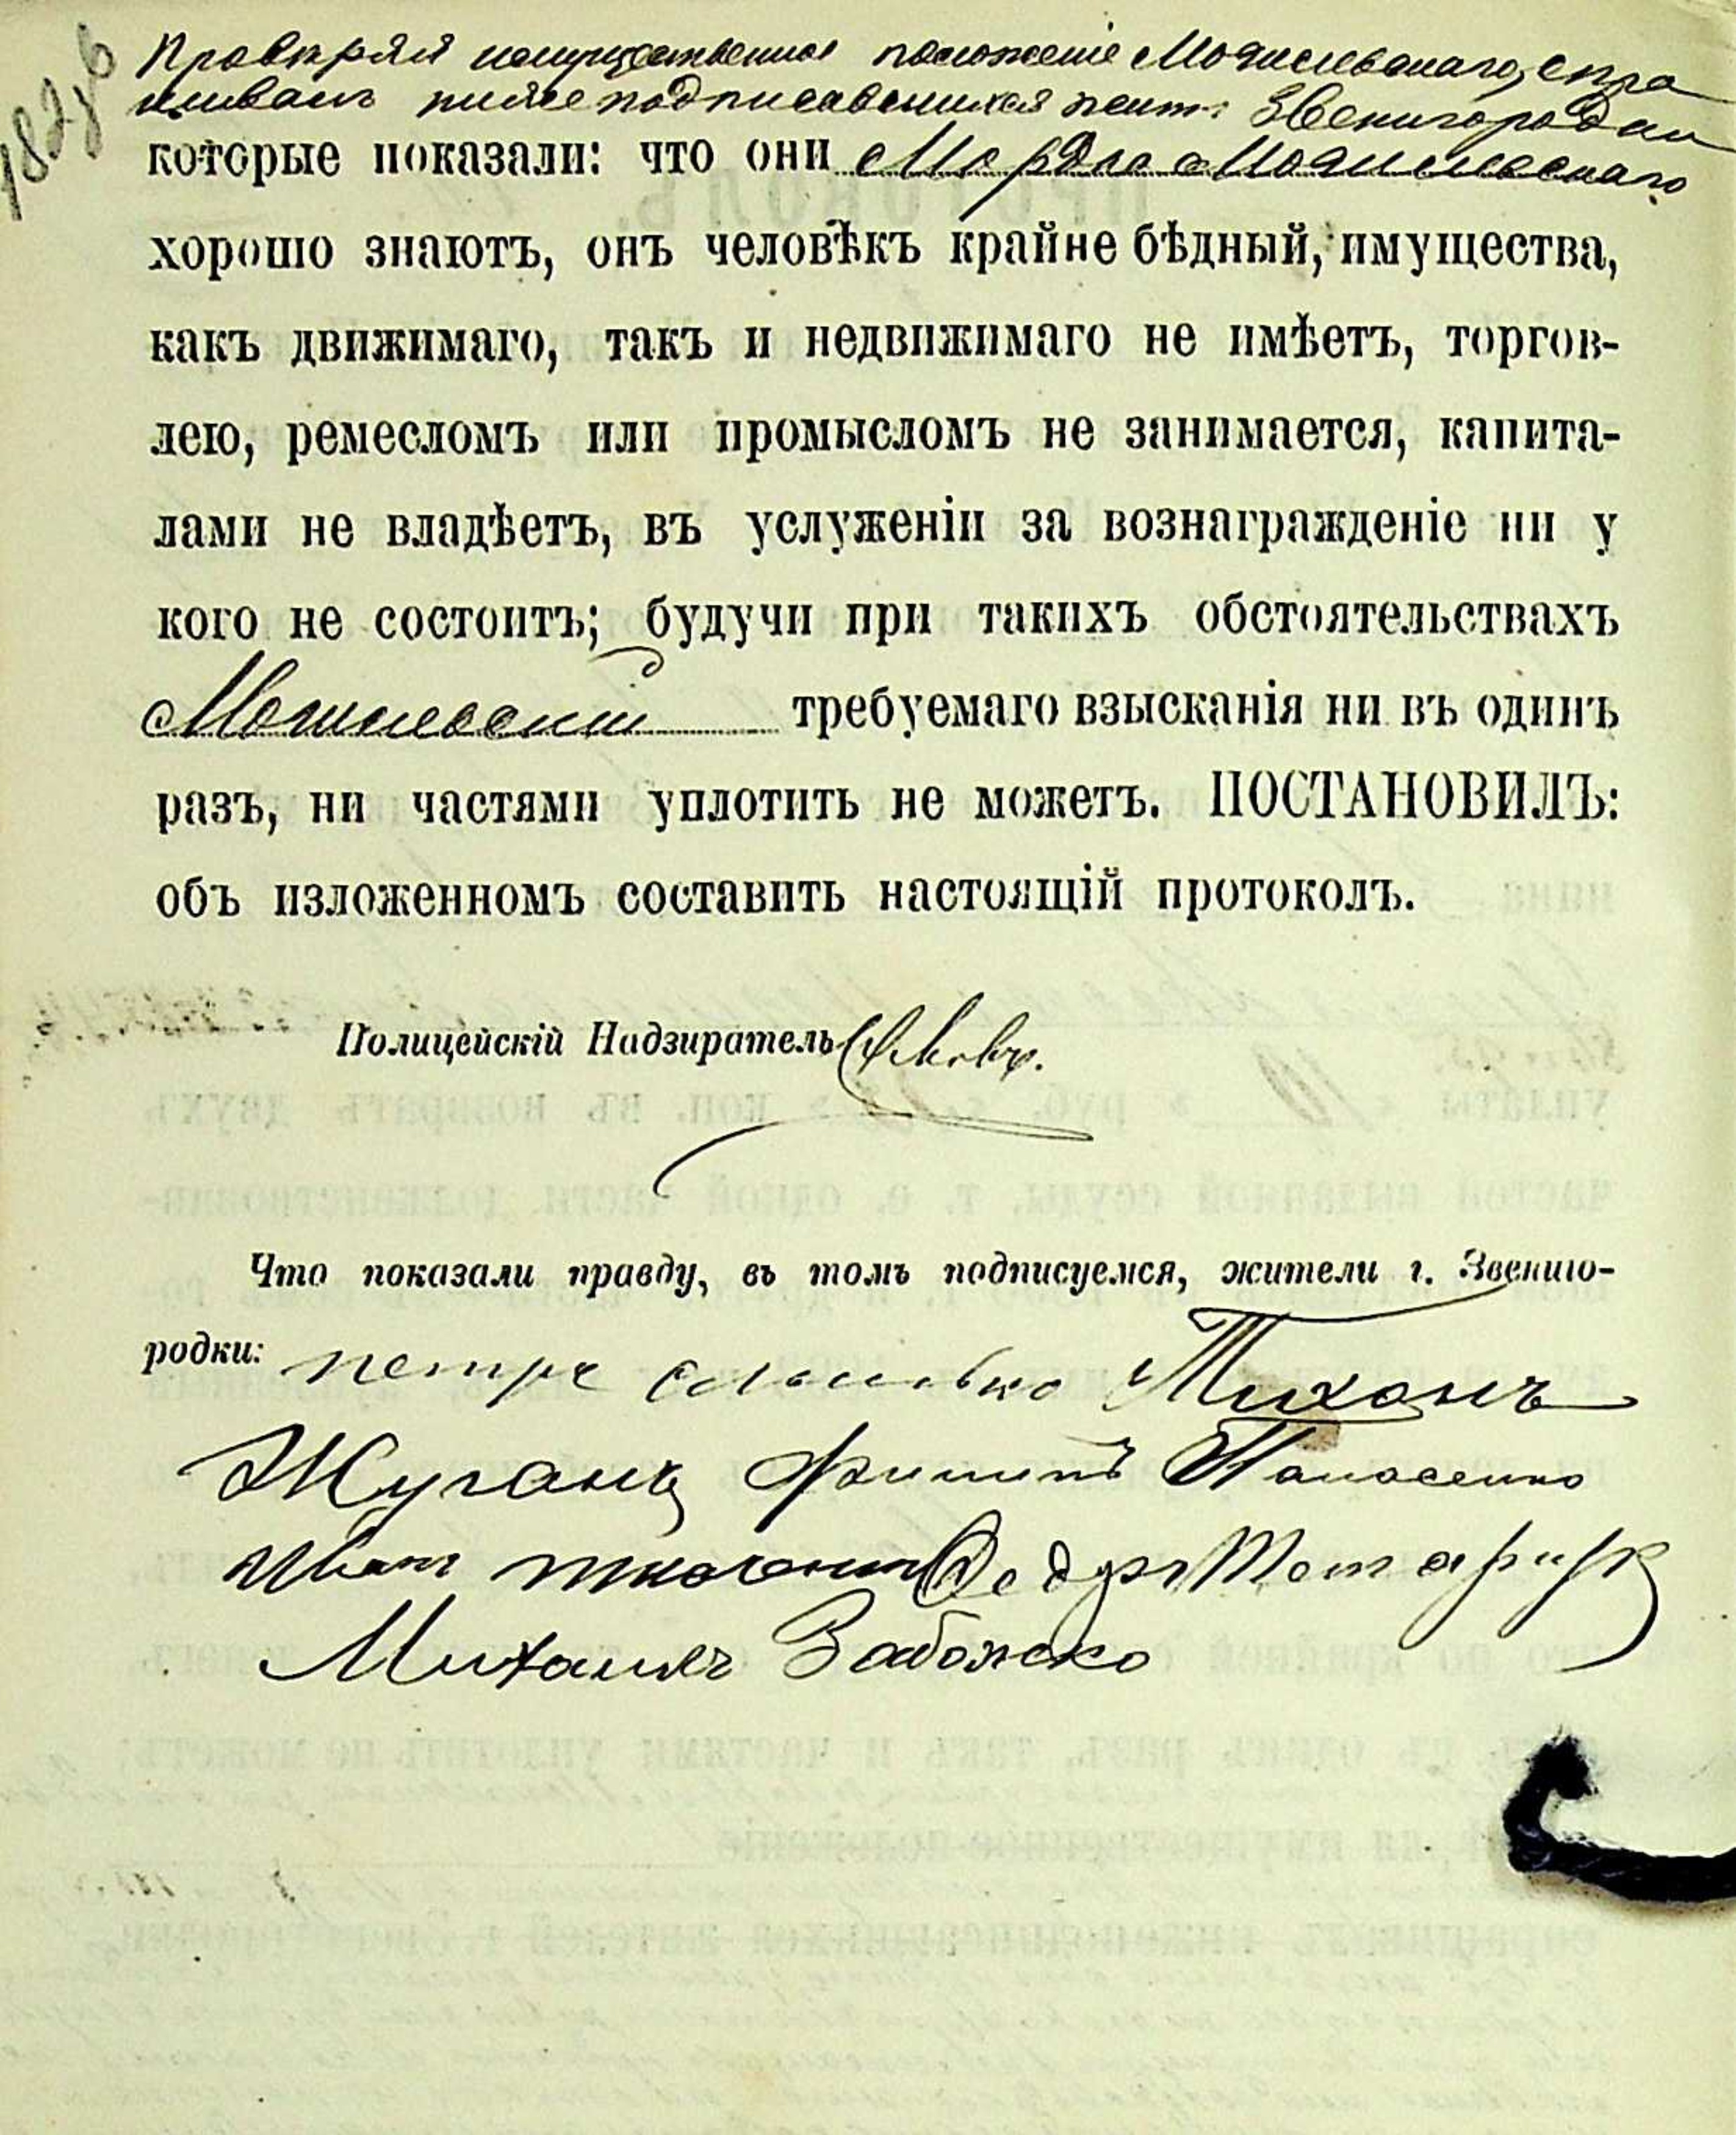 Провѣряя имущественное положеніе Могилевскаго, спра
шивалъ нижеподписавшихся жит. г. Звенигородки
которые показали: что они Мордко Могилевскаго
хорошо знаютъ, онъ человѣкъ крайне бѣдный, имущества,
какъ движимаго, такъ и недвижимаго не имѣетъ, торгов-
лею, ремесломъ или промысломъ не занимается, капита-
лами не владѣетъ, въ услуженіи за вознагражденіе ни у
кого не состоитъ; будучи при такихъ обстоятельствахъ
Могилевскій требуемаго взысканія ни въ одинъ
разъ, ни частями уплотить не можетъ. ПОСТАНОВИЛЪ:
объ изложенномъ составить настоящій протоколъ.
Полицейскій Надзиратель
Что показали правду, въ томъ подписуемся, жители г. Звениго-
родки: петръ Тихонъ
Жуганъ Филипъ Панасенко
Иван Федор Тотарчук
Михаилъ Забожко